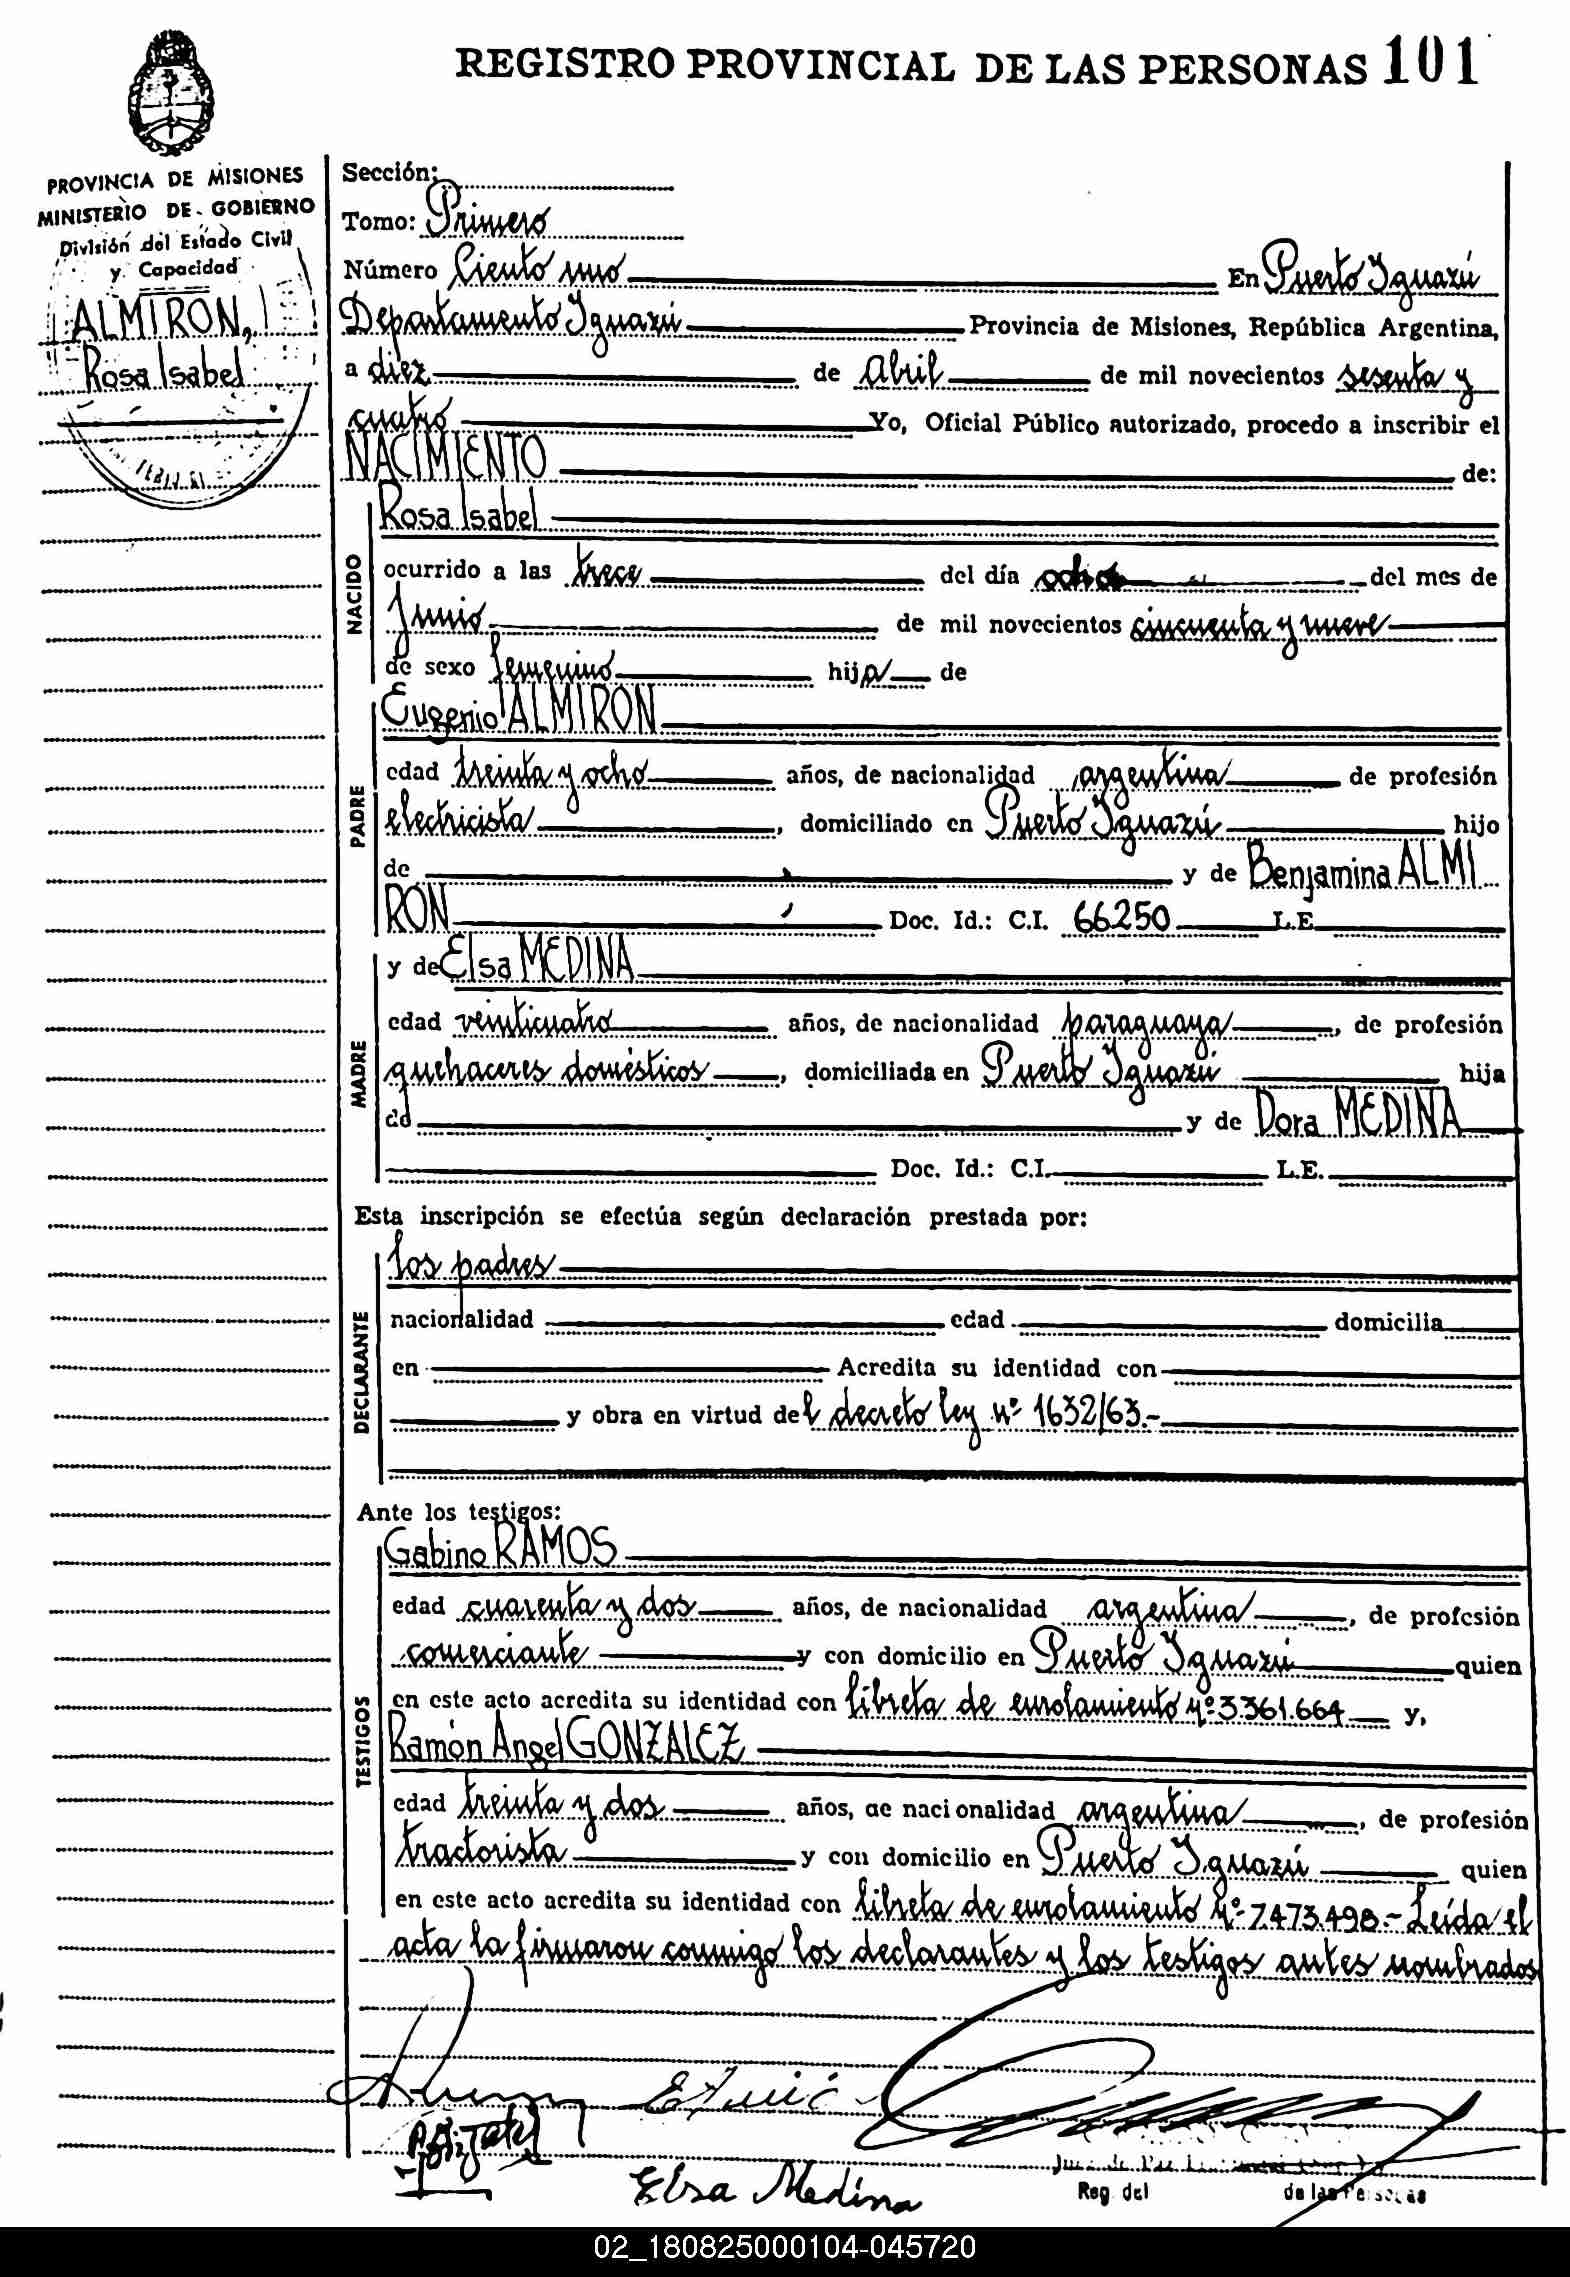 REGISTRO PROVINCIAL DE LAS PERSONAS 101
PROVINCIA DE MISIONES
MINISTERIO DE GOBIERNO
División del Estado Civil
y Capacidad
ALMIRON,
Rosa Isabel
Sección:
Tomo: Primero
Número Ciento uno En Puerto Iguazú
Departamento Iguazú Provincia de Misiones, República Argentina,
a diez de Abril de mil novecientos sesenta y
cuatro Yo, Oficial Público autorizado, procedo a inscribir el
NACIMIENTO de:
NACIDO
Rosa Isabel
ocurrido a las trece del día ocho del mes de
Junio de mil novecientos cincuenta y nueve
de sexo femenino hija de
PADRE
Eugenio ALMIRON
edad treinta y ocho años, de nacionalidad argentina de profesión
electricista, domiciliado en Puerto Iguazú hijo
de y de Benjamina ALMI
RON Doc. Id.: C.I. 66250 L.E.
MADRE
y de Elsa MEDINA
edad veinticuatro años, de nacionalidad paraguaya, de profesión
quehaceres domésticos, domiciliada en Puerto Iguazú hija
de y de Dora MEDINA
Doc. Id.: C.I. L.E.
Esta inscripción se efectúa según declaración prestada por:
DECLARANTE
los padres
nacionalidad edad domicilia
en Acredita su identidad con
y obra en virtud del decreto ley nº 1632/63.-
Ante los testigos:
TESTIGOS
Gabino RAMOS
edad cuarenta y dos años, de nacionalidad argentina, de profesión
comerciante y con domicilio en Puerto Iguazú quien
en este acto acredita su identidad con libreta de enrolamiento nº 3.361.664 y,
Ramón Angel GONZALEZ
edad treinta y dos años, de nacionalidad argentina, de profesión
tractorista y con domicilio en Puerto Iguazú quien
en este acto acredita su identidad con libreta de enrolamiento nº 7.473.498.- Leída el
acta la firmaron conmigo los declarantes y los testigos antes nombrados
Elsa Medina
Reg. del de las Personas
02_180825000104-045720